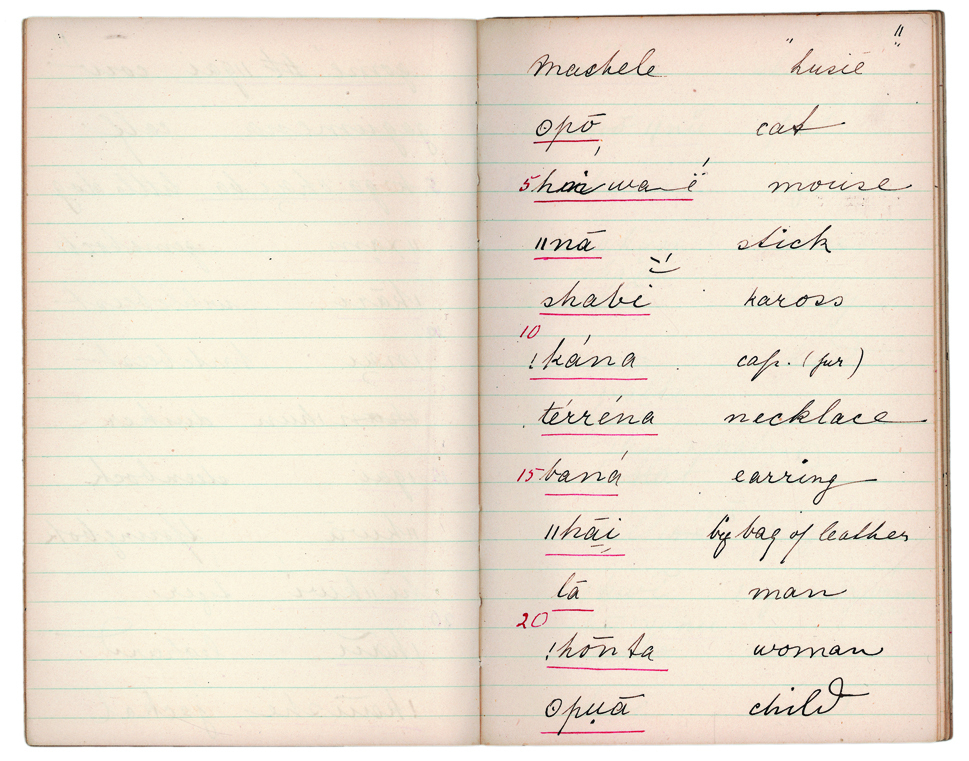 "
Machele "husie"
ʘpō cat
5 waë́ mouse
ǁnā stick
shabi kaross
10
ǃkána cap. (fur)
térréna necklace
15 baná earring
ǁhāi bag of leather
tā man
20
ǃhōnta woman
ʘpụā child